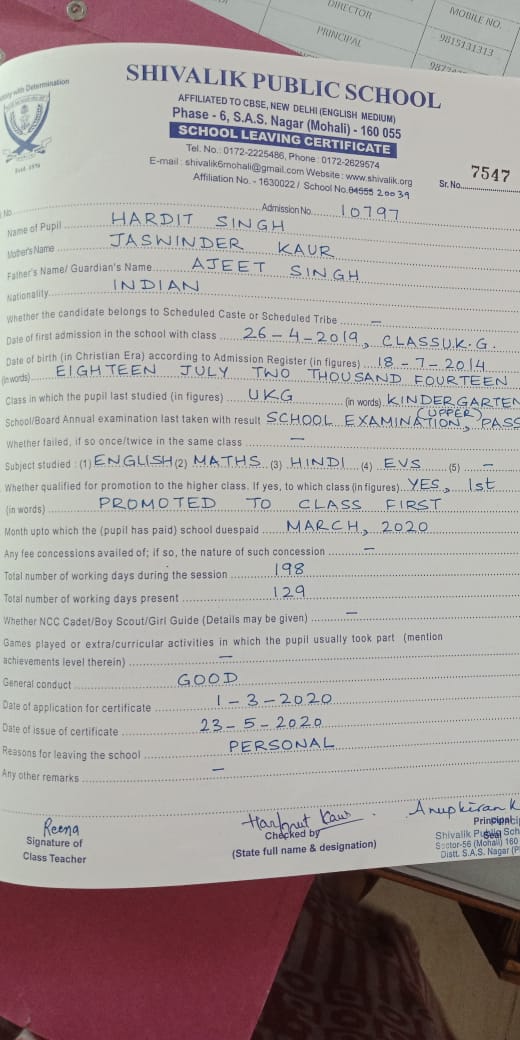 DIRECTOR
MOBILE NO.
PRINCIPAL
9815131313
SHIVALIK PUBLIC SCHOOL
AFFILIATED TO CBSE, NEW DELHI (ENGLISH MEDIUM)
Phase - 6, S.A.S. Nagar (Mohali) - 160 055
SCHOOL LEAVING CERTIFICATE
Tel. No.: 0172-2225486, Phone : 0172-2629574
E-mail : shivalik6mohali@gmail.com Website : www.shivalik.org
Affiliation No. - 1630022 / School No. 04555 20039
Sr. No. 7547
No. Admission No. 10797
Name of Pupil HARDIT SINGH
Mother's Name JASWINDER KAUR
Father's Name/ Guardian's Name AJEET SINGH
Nationality INDIAN
Whether the candidate belongs to Scheduled Caste or Scheduled Tribe —
Date of first admission in the school with class 26-4-2019, CLASS U.K.G.
Date of birth (in Christian Era) according to Admission Register (in figures) 18-7-2014
(in words) EIGHTEEN JULY TWO THOUSAND FOURTEEN
Class in which the pupil last studied (in figures) UKG (in words) KINDERGARTEN
(UPPER)
School/Board Annual examination last taken with result SCHOOL EXAMINATION, PASS
Whether failed, if so once/twice in the same class —
Subject studied : (1) ENGLISH (2) MATHS (3) HINDI (4) EVS (5) —
Whether qualified for promotion to the higher class. If yes, to which class (in figures) YES, 1st
(in words) PROMOTED TO CLASS FIRST
Month upto which the (pupil has paid) school duespaid MARCH, 2020
Any fee concessions availed of; if so, the nature of such concession —
Total number of working days during the session 198
Total number of working days present 129
Whether NCC Cadet/Boy Scout/Girl Guide (Details may be given) —
Games played or extra/curricular activities in which the pupil usually took part (mention
achievements level therein) —
General conduct GOOD
Date of application for certificate 1-3-2020
Date of issue of certificate 23-5-2020
Reasons for leaving the school PERSONAL
Any other remarks —
Reena
Signature of
Class Teacher
Harpreet Kaur
Checked by
(State full name & designation)
Anupkiran K
Principal
Seal
Shivalik Public Sch
Sector-56 (Mohali) 160
Distt. S.A.S. Nagar (P